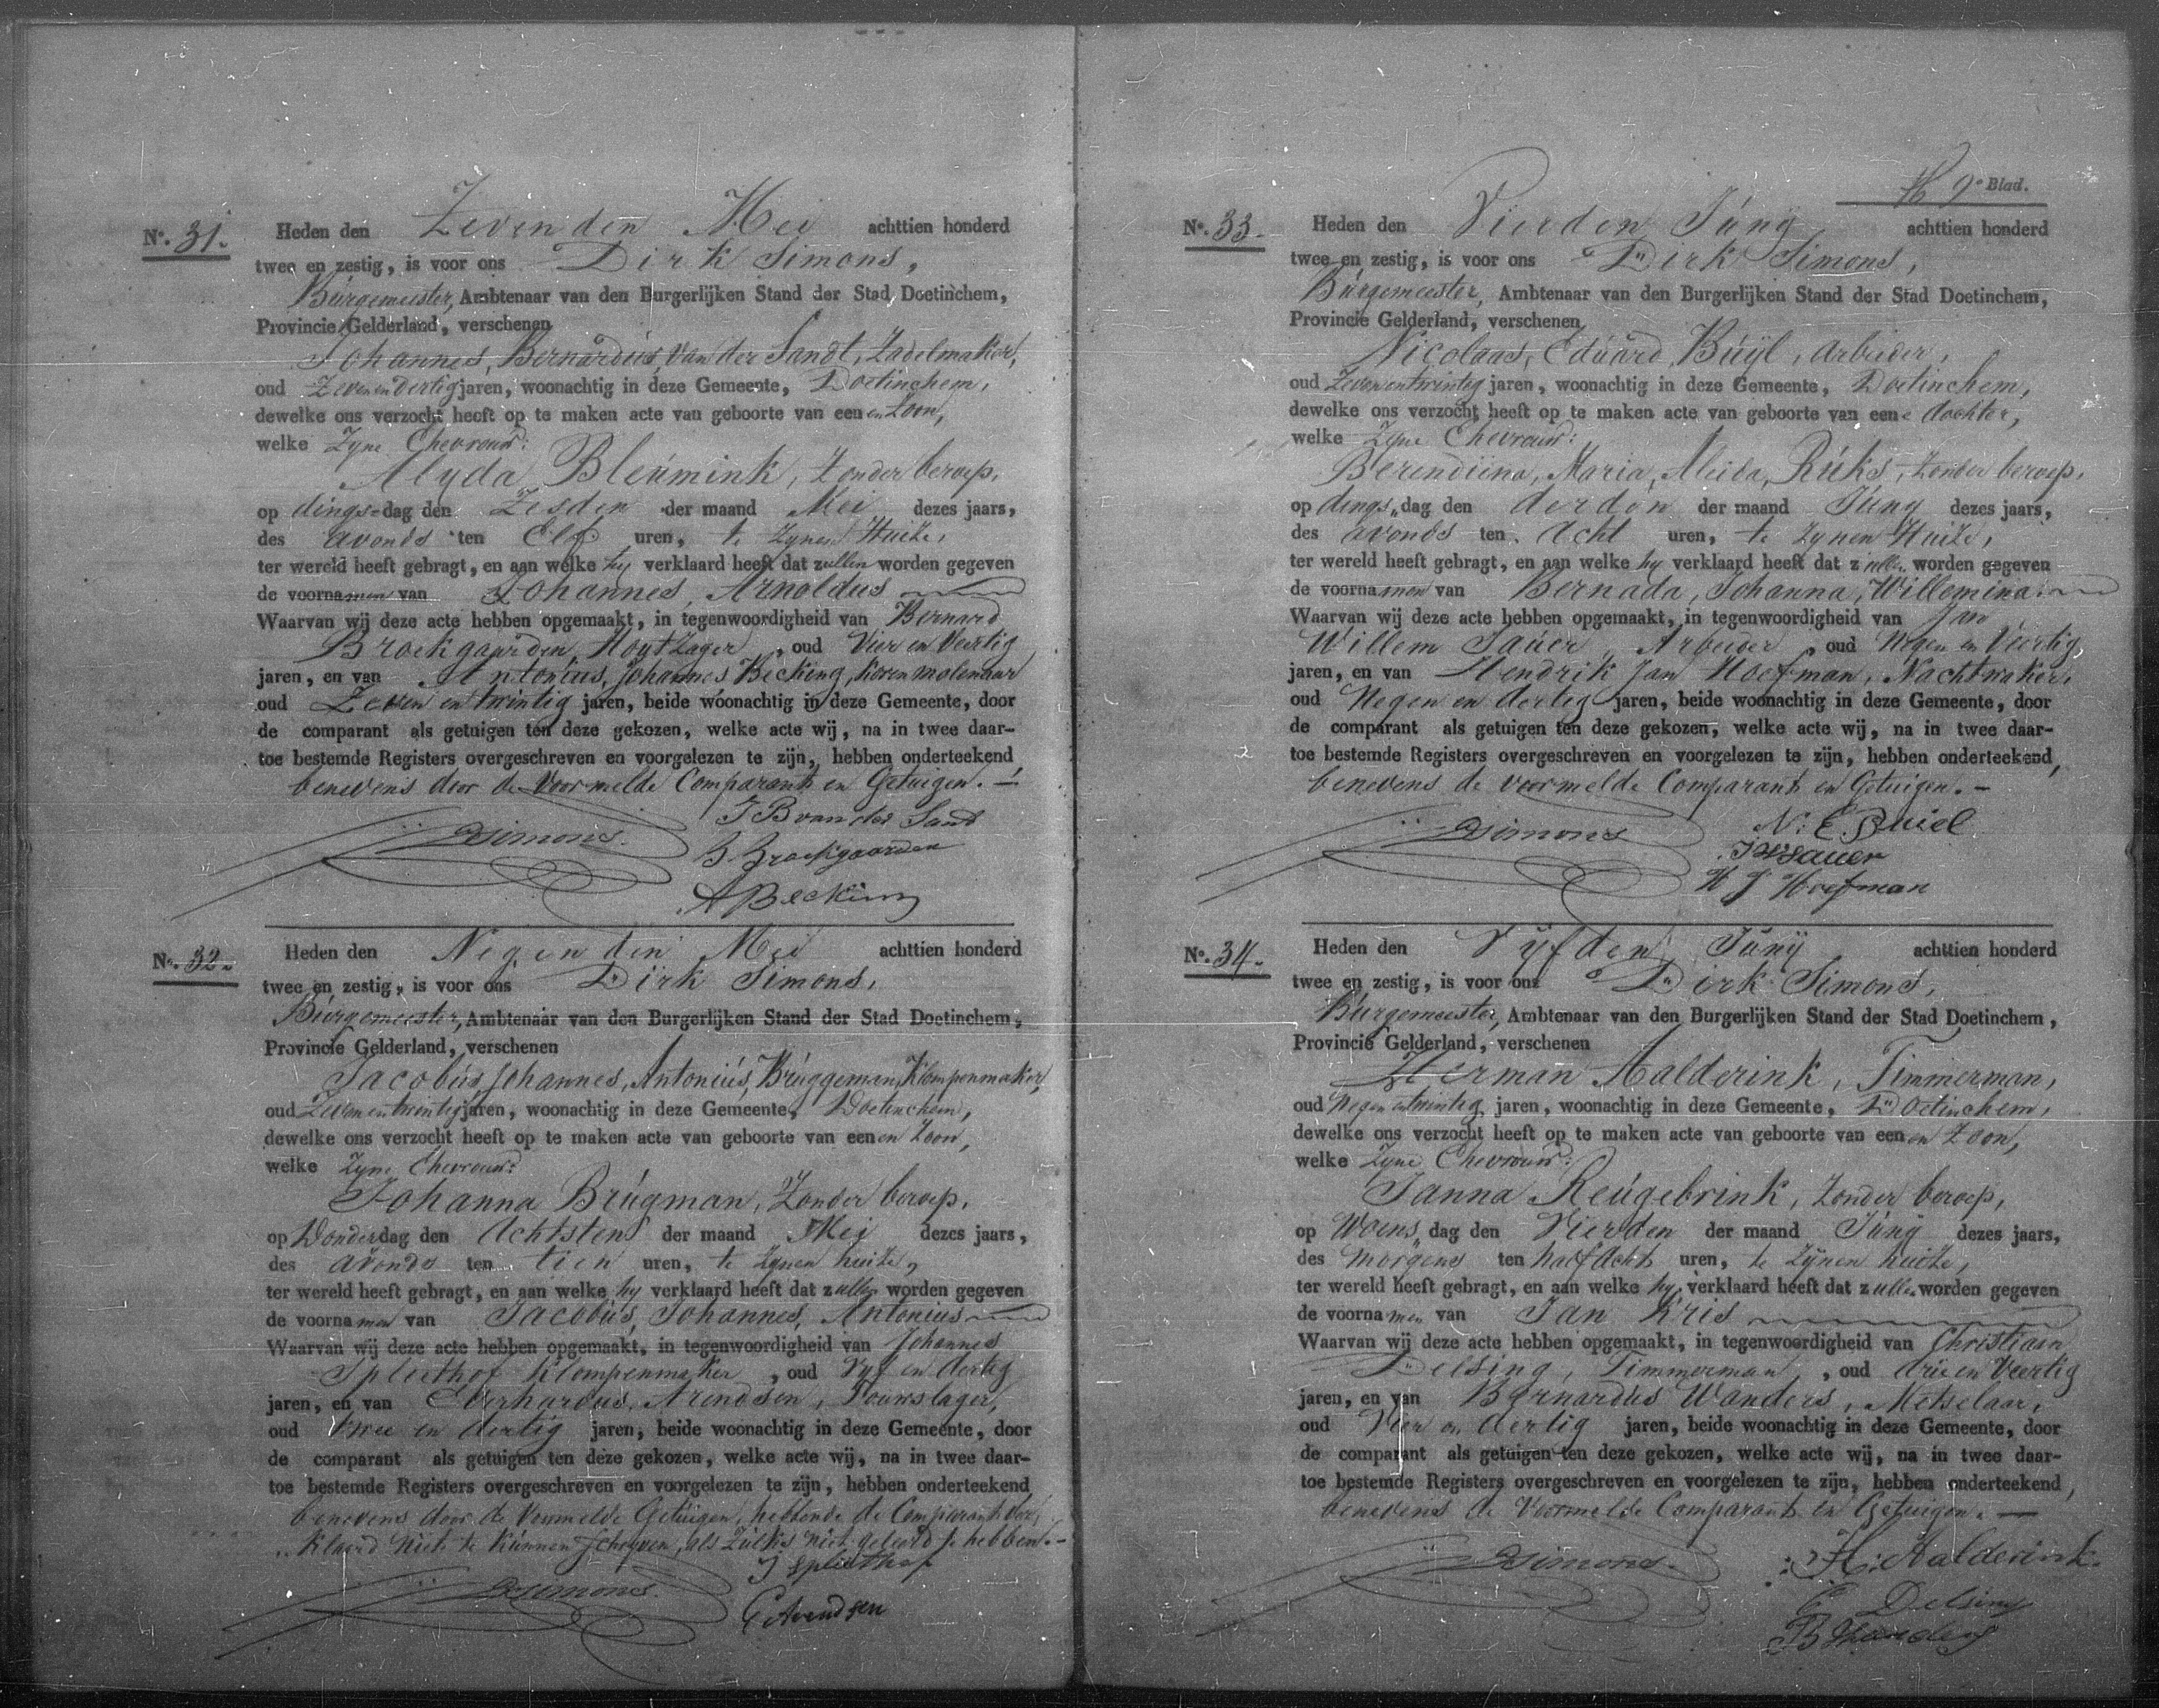 No. 31.
Heden den Zevenden Mei achttien honderd
twee en zestig, is voor ons Dirk Simons,
Burgemeester, Ambtenaar van den Burgerlijken Stand der Stad Doetinchem,
Provincie Gelderland, verschenen
Johannes, Bernardus, van der Sandt, Zadelmaker,
oud Zeven en dertig jaren, woonachtig in deze Gemeente, Doetinchem,
dewelke ons verzocht heeft op te maken acte van geboorte van een en Zoon,
welke Zyne Ehevrouw:
Alyda Bleumink, Zonder beroep,
op dings-dag den Zesden der maand Mei dezes jaars,
des avonds ten Elf uren, te Zynen Huize,
ter wereld heeft gebragt, en aan welke hy verklaard heeft dat zullen worden gegeven
de voornamen van Johannes, Arnoldus
Waarvan wij deze acte hebben opgemaakt, in tegenwoordigheid van Bernard
Broekgaarden, Houtzager, oud Vier en Veertig
jaren, en van Antonius, Johannes Becking, Koren molenaar
oud Zeven en twintig jaren, beide woonachtig in deze Gemeente, door
de comparant als getuigen ten deze gekozen, welke acte wij, na in twee daar-
toe bestemde Registers overgeschreven en voorgelezen te zijn, hebben onderteekend
benevens door de Voormelde Comparant en Getuigen. —
J B van der Sand
DSimons.
B Broekgaarden
A Becking
No. 32.
Heden den Negenden Mei achttien honderd
twee en zestig, is voor ons Dirk Simons,
Burgemeester, Ambtenaar van den Burgerlijken Stand der Stad Doetinchem,
Provincie Gelderland, verschenen
Jacobus, Johannes, Antonius, Bruggeman, Klompenmaker,
oud Zeven en twintig jaren, woonachtig in deze Gemeente, Doetinchem,
dewelke ons verzocht heeft op te maken acte van geboorte van een en Zoon,
welke Zyne Ehevrouw:
Johanna Brugman, Zonder beroep,
op Donderdag den Achtsten der maand Mei dezes jaars,
des avonds ten tien uren, te Zynen huize,
ter wereld heeft gebragt, en aan welke hy verklaard heeft dat zullen worden gegeven
de voornamen van Jacobus, Johannes, Antonius
Waarvan wij deze acte hebben opgemaakt, in tegenwoordigheid van Johannes
Spliethof Klompenmaker, oud Vyf en dertig
jaren, en van Everhardus, Arendsen, Touwslager,
oud twee en dertig jaren, beide woonachtig in deze Gemeente, door
de comparant als getuigen ten deze gekozen, welke acte wij, na in twee daar-
toe bestemde Registers overgeschreven en voorgelezen te zijn, hebben onderteekend
benevens door de Voormelde Getuigen, hebbende de Comparant ver-
klaard niet te kunnen schryven, als Zulks niet geleerd te hebben. -
J Spliethof
DSimons.
E Arendsen
9e Blad.
No. 33.
Heden den Vierden Juny achttien honderd
twee en zestig, is voor ons Dirk Simons,
Burgemeester, Ambtenaar van den Burgerlijken Stand der Stad Doetinchem,
Provincie Gelderland, verschenen
Nicolaas, Eduard, Buyl, Arbeider,
oud Zeven en twintig jaren, woonachtig in deze Gemeente, Doetinchem,
dewelke ons verzocht heeft op te maken acte van geboorte van eene dochter,
welke Zyne Ehevrouw:
Berendiena, Maria, Aleida, Ruks, Zonder beroep,
op dings-dag den derden der maand Juny dezes jaars,
des avonds ten Acht uren, te Zynen Huize,
ter wereld heeft gebragt, en aan welke hy verklaard heeft dat zullen worden gegeven
de voornamen van Bernada, Johanna, Willemina.
Waarvan wij deze acte hebben opgemaakt, in tegenwoordigheid van Jan
Willem Sauer, Arbeider, oud Negen en Veertig
jaren, en van Hendrik Jan Hoefman, Nachtwaker,
oud Negen en dertig jaren, beide woonachtig in deze Gemeente, door
de comparant als getuigen ten deze gekozen, welke acte wij, na in twee daar-
toe bestemde Registers overgeschreven en voorgelezen te zijn, hebben onderteekend,
benevens de voormelde Comparant en Getuigen. -
N: E Buiel
DSimons
J W Sauer
H J Hoefman
No. 34.
Heden den Vyfden Juny achttien honderd
twee en zestig, is voor ons Dirk Simons,
Burgemeester, Ambtenaar van den Burgerlijken Stand der Stad Doetinchem,
Provincie Gelderland, verschenen
Herman Aalderink, Timmerman,
oud Negen en twintig jaren, woonachtig in deze Gemeente, Doetinchem,
dewelke ons verzocht heeft op te maken acte van geboorte van een en Zoon,
welke Zyne Ehevrouw:
Janna Reugebrink, Zonder beroep,
op Woens-dag den Vierden der maand Juny dezes jaars,
des morgens ten half Acht uren, te Zynen huize,
ter wereld heeft gebragt, en aan welke hy verklaard heeft dat zullen worden gegeven
de voornamen van Jan Kris
Waarvan wij deze acte hebben opgemaakt, in tegenwoordigheid van Christiaan
Delsing, Timmerman, oud drie en Veertig
jaren, en van Bernardus Wanders, Metselaar,
oud Vier en dertig jaren, beide woonachtig in deze Gemeente, door
de comparant als getuigen ten deze gekozen, welke acte wij, na in twee daar-
toe bestemde Registers overgeschreven en voorgelezen te zijn, hebben onderteekend,
benevens de Voormelde Comparant en Getuigen. —
H: Aalderink.
DSimons.
C Delsing
B Wanders